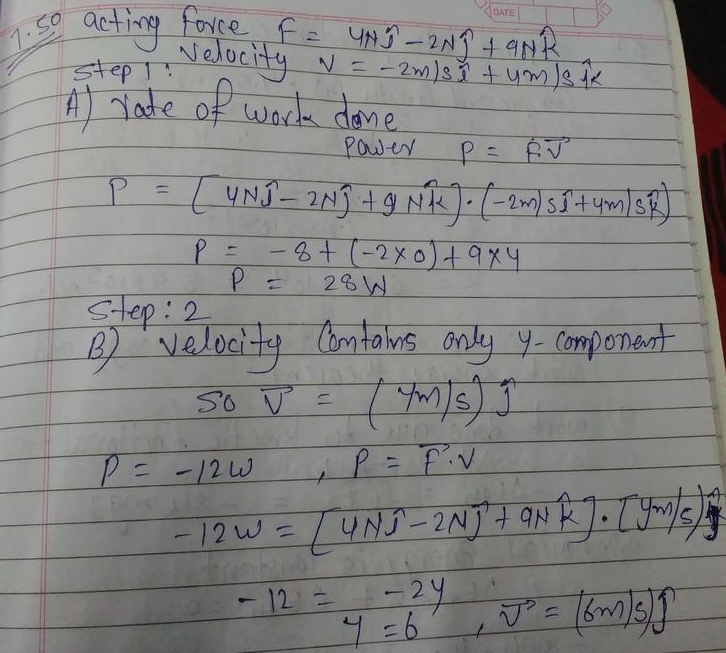 DATE
7.50 acting force F = 4Nî - 2Nĵ + 9Nk̂
velocity v = -2m/sî + 4m/s k̂
Step 1:
A) rate of work done
power P = F.V⃗
P = [4Nî - 2Nĵ + 9Nk̂]·(-2m/sî + 4m/sk̂)
P = -8 + (-2×0) + 9×4
P = 28W
Step: 2
B) velocity contains only y-component
so V⃗ = (ym/s) ĵ
P = -12W , P = F⃗.V
-12W = [4Nî - 2Nĵ + 9Nk̂]·[ym/s)ĵ
-12 = -2y
y = 6 , V⃗ = (6m/s)ĵ